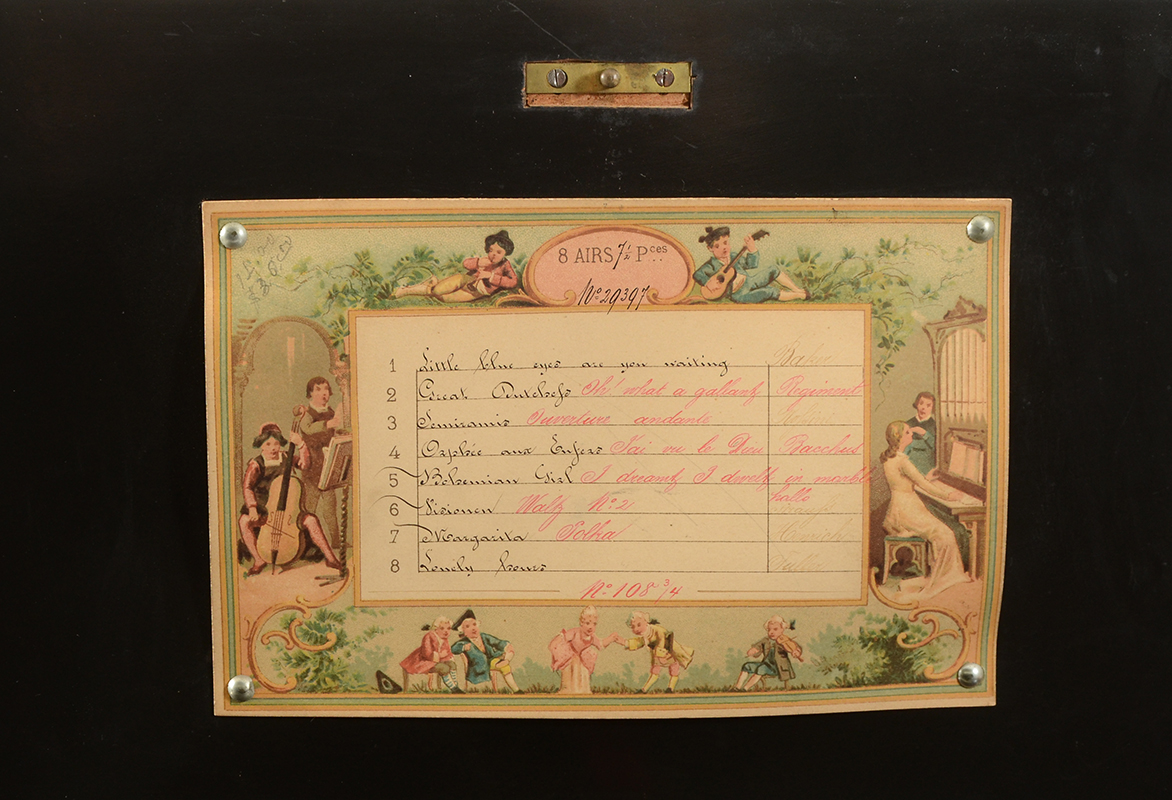 8 AIRS 7½ Pces
No 29397
1 Little blue eyes are you waiting
2 Great Dutchess Oh! what a gallant Regiment
3 Semiramis Ouverture andante
4 Orphée aux Enfers J'ai vu le Dieu Bacchus
5 Bohemian Girl I dreamt I dwelt in marble
halls
6 Visionen Waltz No 2
7 Margarita Polka
8 Lonely hours
No 108 3/4